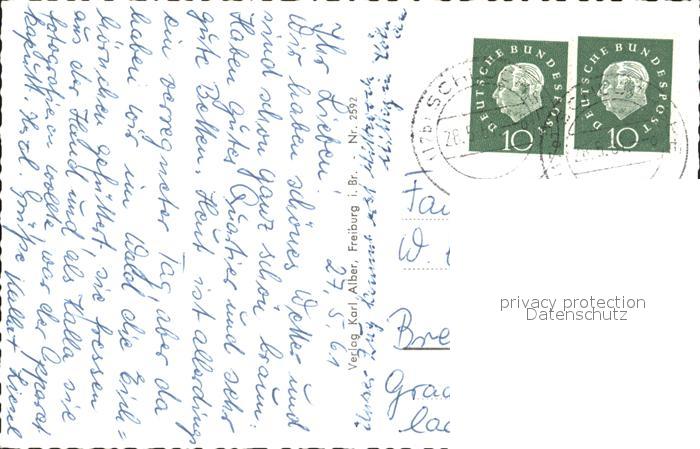 27.5.61
Ihr Lieben!
Wir haben schönes Wetter und
sind schon ganz schön braun.
Haben gutes Quartier und sehr
gute Betten. Heut ist allerdings
ein verregneter Tag, aber da
haben wir im Wald die Eich=
hörnchen gefüttert, sie fressen
aus der Hand und als Kalla sie
fotografieren wollte, war der Apparat
kaputt. Herzl. Grüße Kalla + 
Verlag Karl Alber, Freiburg i. Br. - Nr. 2592
DEUTSCHE BUNDESPOST
10
DEUTSCHE BUNDESPOST
10
(17b) SCH
28.5.6
Fa
W.
Bre
Gra
la
privacy protection
Datenschutz